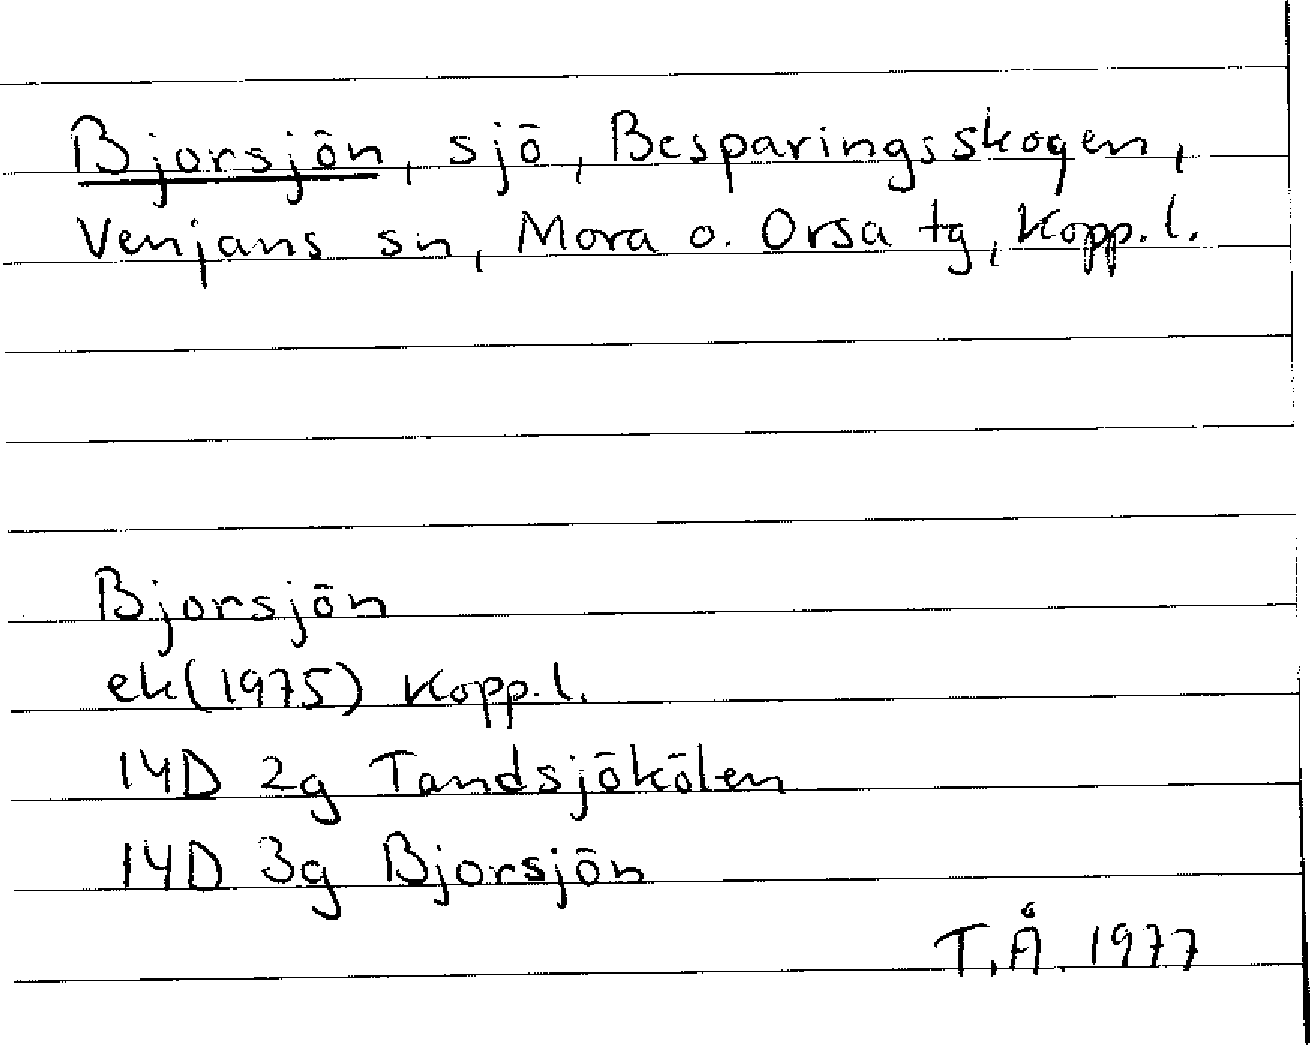 Bjorsjön, sjö, Besparingsskogen,
Venjans sn, Mora o. Orsa tg, Kopp. l.
Bjorsjön
ek (1975) Kopp. l.
14D 2g Tandsjökölen
14D 3g Bjorsjön
T.Å. 1977